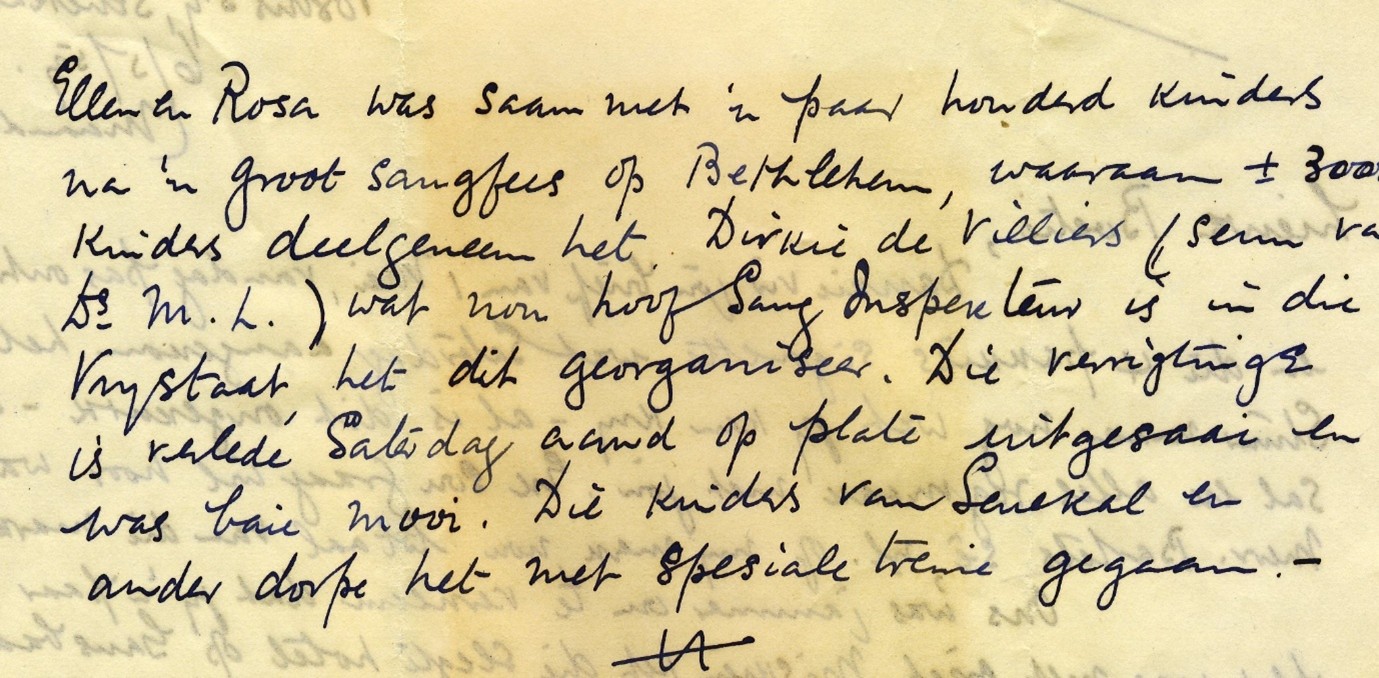 Ellen en Rosa was saam met 'n paar honderd kinders
na 'n groot sangfees op Bethlehem, waaraan ± 3000
kinders deelgeneem het. Dirkie de Villiers (seun va
Ds M. L.) wat nou hoof Sang Inspekteur is in die
Vrystaat, het dit georganiseer. Die verrigtinge
is verlede Saterdag aand op plate uitgesaai en
was baie mooi. Die kinders van Senekal en
ander dorpe het met spesiale treine gegaan. –